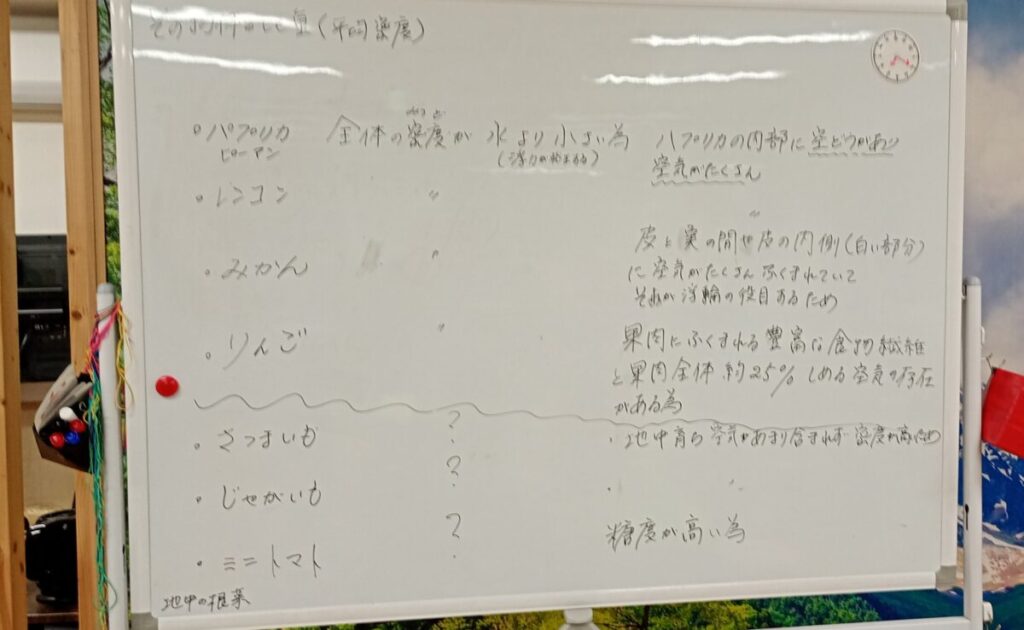 (平均密度)
パプリカ 全体の密度が 水より小さい為 パプリカの内部に空どうがあり
ピーマン 空気がたくさん
・レンコン 〃 〃
・みかん 〃 皮と実の間や皮の内側(白い部分)
に空気がたくさんふくまれていて
それが浮輪の役目あるため
・りんご 〃 果肉にふくまれる豊富な食物繊維
と果肉全体約25%しめる空気の存在
がある為
・さつまいも ? ・地中育ち空気があまり含まれず密度が高いため
・じゃがいも ? ・ 〃
・ミニトマト ? 糖度が高い為
地中の根菜